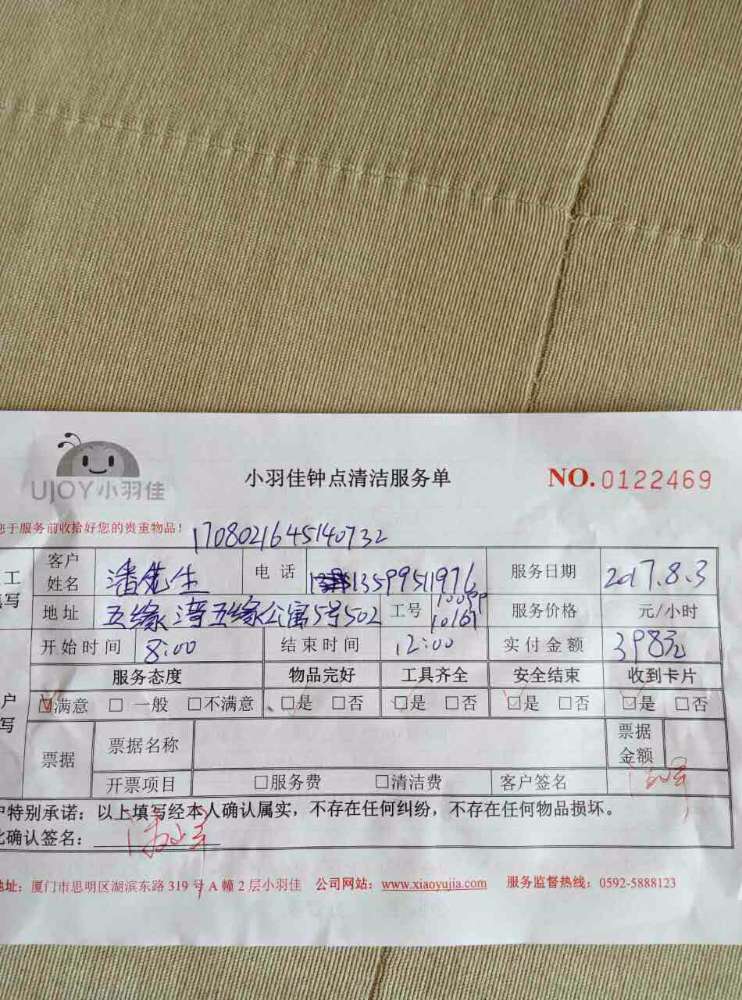 UJOY小羽佳
小羽佳钟点清洁服务单
NO. 0122469
您于服务前收拾好您的贵重物品！
1708021645140732
工 客户姓名 潘先生 电话 13599511976 服务日期 2017.8.3
写 地址 五缘湾五缘公寓5号502 工号 服务价格 元/小时
开始时间 8:00 结束时间 12:00 实付金额 398元
服务态度 物品完好 工具齐全 安全结束 收到卡片
户 ☑满意 □一般 □不满意 □是 □否 □是 □否 ☑是 □否 ☑是 □否
写 票据 票据名称 票据金额
开票项目 □服务费 □清洁费 客户签名
户特别承诺：以上填写经本人确认属实，不存在任何纠纷，不存在任何物品损坏。
此确认签名：
地址：厦门市思明区湖滨东路 319 号 A 幢 2 层小羽佳 公司网站：www.xiaoyujia.com 服务监督热线：0592-5888123